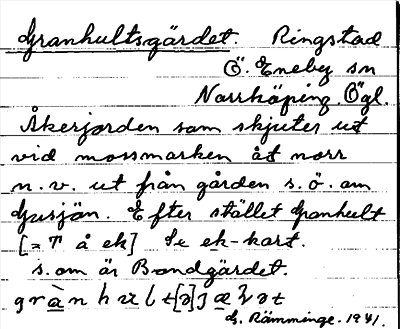 Granhultsgärdet Ringstad
Ö. Eneby sn
Norrköping Ögl.
Åkerjorden som skjuter ut
vid mossmarken åt norr
n.v. ut från gården s.ö. om
Gusjön. Efter stället Granhult
[=T å ek] Se ek-kart.
s. om är Bondgärdet.
G. Rämminge. 1941.